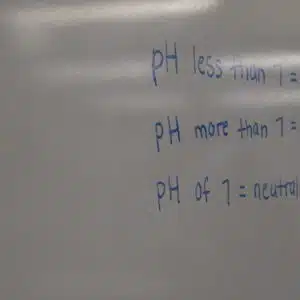 pH less than 7 =
pH more than 7 =
pH of 7 = neutral